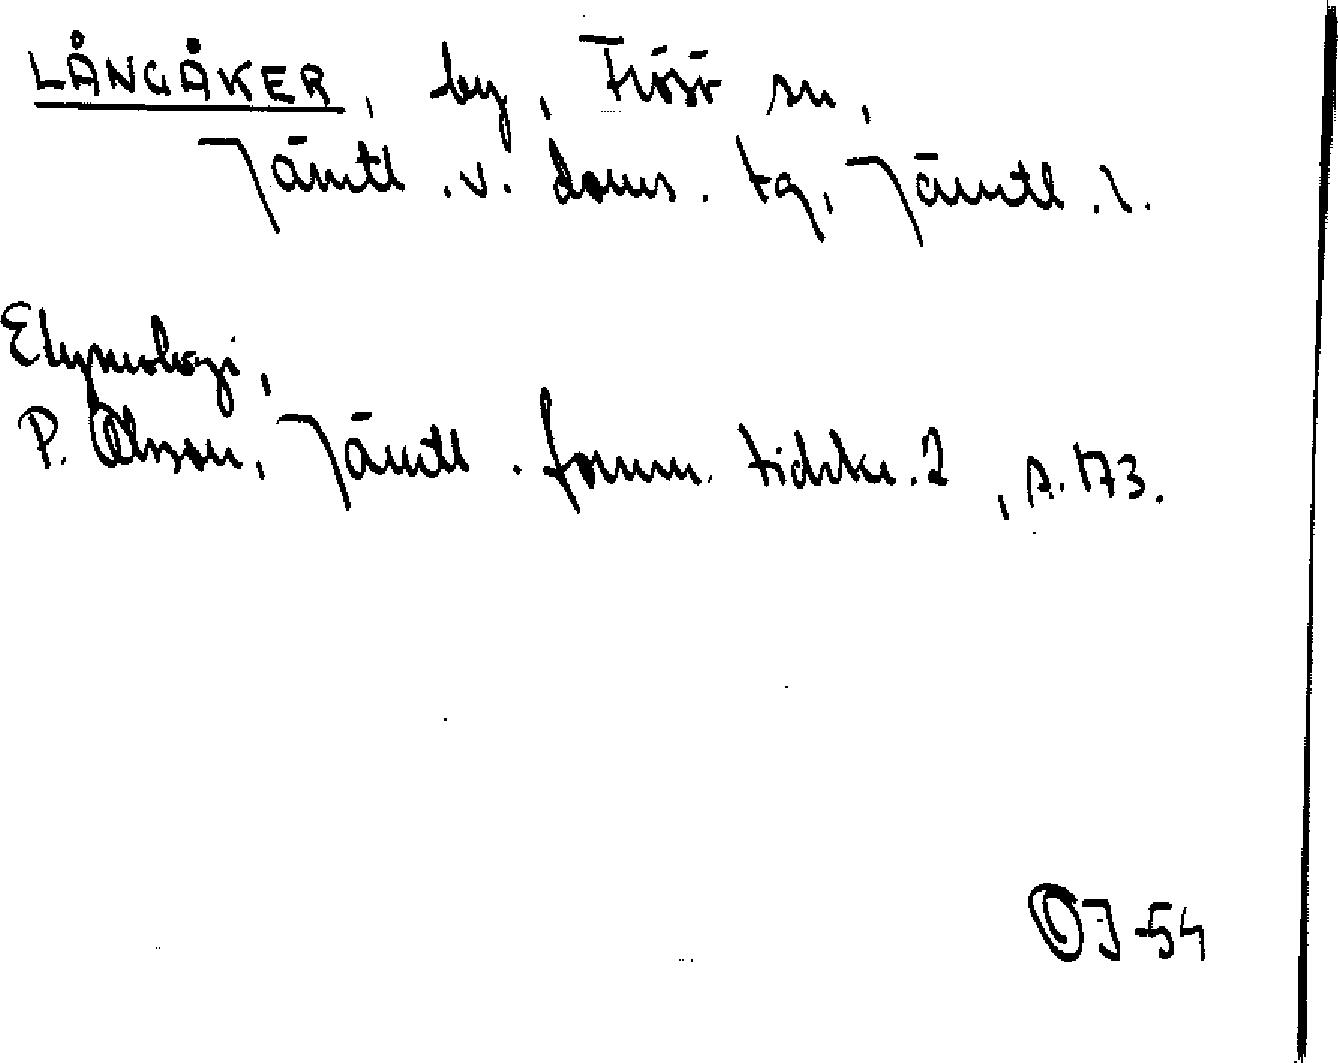 LÅNGÅKER, by, Frösö sn,
Jämtl. v. doms. tg, Jämtl. l.
Etymologi,
P. Olsson, Jämtl. fornm. tidskr. 2, s. 173.
OJ-54